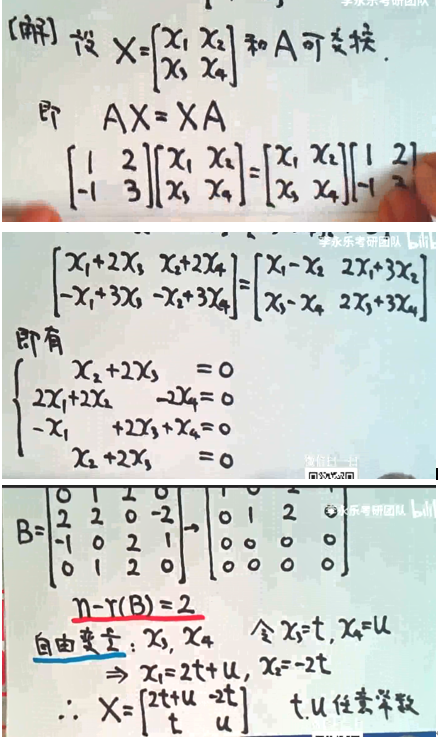 李永乐考研团队
[解] 设 X=[x₁ x₂; x₃ x₄] 和A可交换.
即 AX=XA
[1 2; -1 3][x₁ x₂; x₃ x₄]=[x₁ x₂; x₃ x₄][1 2; -1
李永乐考研团队 bili
[x₁+2x₃ x₂+2x₄; -x₁+3x₃ -x₂+3x₄]=[x₁-x₂ 2x₁+3x₂; x₃-x₄ 2x₃+3x₄]
即有
x₂+2x₃ =0
2x₁+2x₂ -2x₄=0
-x₁ +2x₃+x₄=0
x₂+2x₃ =0
李永乐考研团队 bili
B=[0 1 2 0; 2 2 0 -2; -1 0 2 1; 0 1 2 0]→[0 1 2 0; 0 0 0 0; 0 0 0 0]
n-r(B)=2
自由变量: x₃, x₄ 令 x₃=t, x₄=u
⇒ x₁=2t+u, x₂=-2t
∴ X=[2t+u -2t; t u] t.u 任意常数